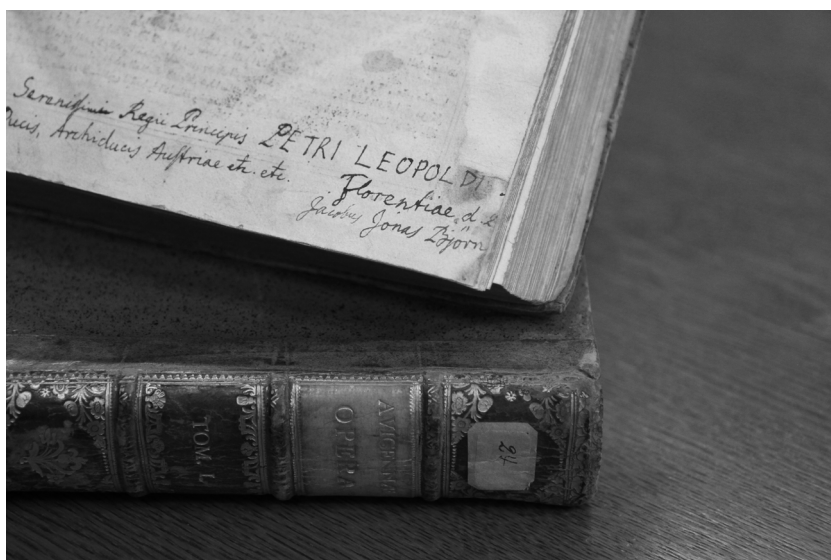 Serenissimi Regii Principis PETRI LEOPOLDI
Ducis, Archiducis Austriae etc. etc.
Florentiae, d
Jacobus Jonas Björn
AVICENNAE
OPERA
TOM. I.